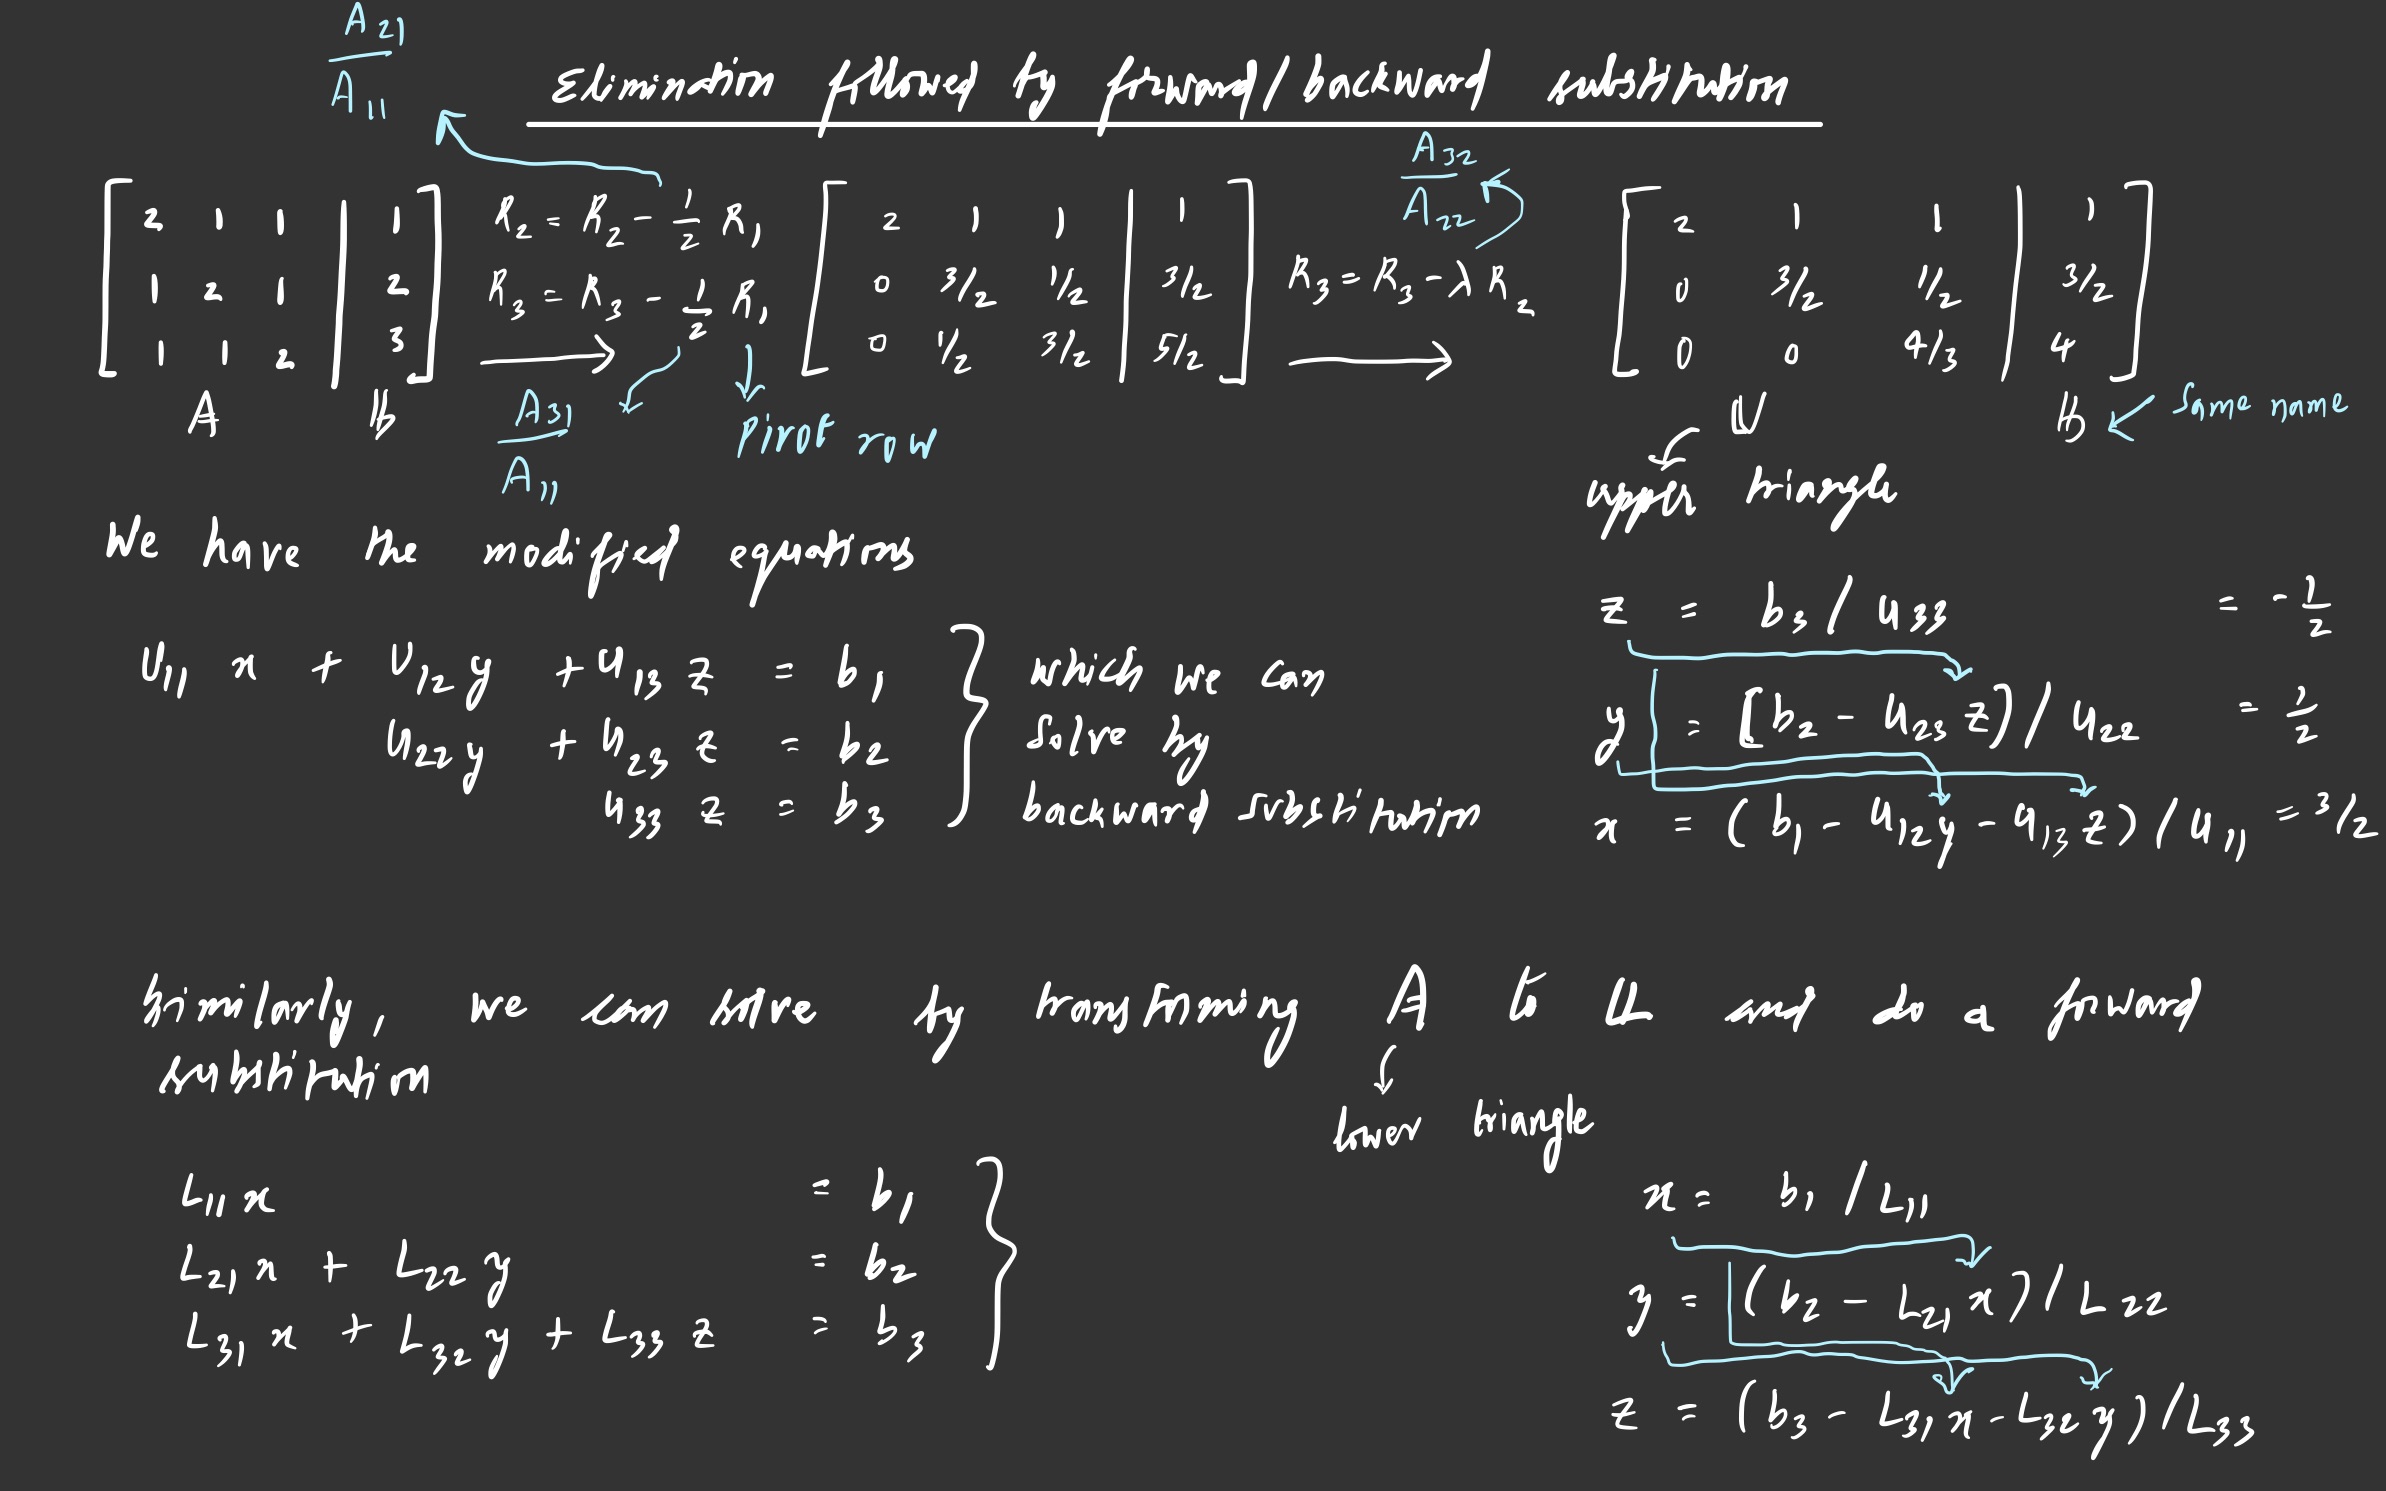 A21
A11
Elimination followed by forward/backward substitution
A32
A22
2 1 1 | 1 R2 = R2 - 1/2 R1 2 1 1 | 1 2 1 1 | 1
1 2 1 | 2 R3 = R3 - 1/2 R1 0 3/2 1/2 | 3/2 R3 = R3 - λ R2 0 3/2 1/2 | 3/2
1 1 2 | 3 0 1/2 3/2 | 5/2 0 0 4/3 | 4
A b U b same name
A31
A11
Pivot row
upper triangle
We have the modified equations
U11 x + U12 y + U13 z = b1
U22 y + U23 z = b2
U33 z = b3
which we can
solve by
backward substitution
z = b3 / U33 = -1/2
y = [b2 - U23 z) / U22 = 1/2
x = (b1 - U12 y - U13 z) / U11 = 3/2
Similarly, we can solve by transforming A to L and do a forward
substitution
lower triangle
L11 x = b1
L21 x + L22 y = b2
L31 x + L32 y + L33 z = b3
x = b1 / L11
y = (b2 - L21 x) / L22
z = (b3 - L31 x - L32 y) / L33